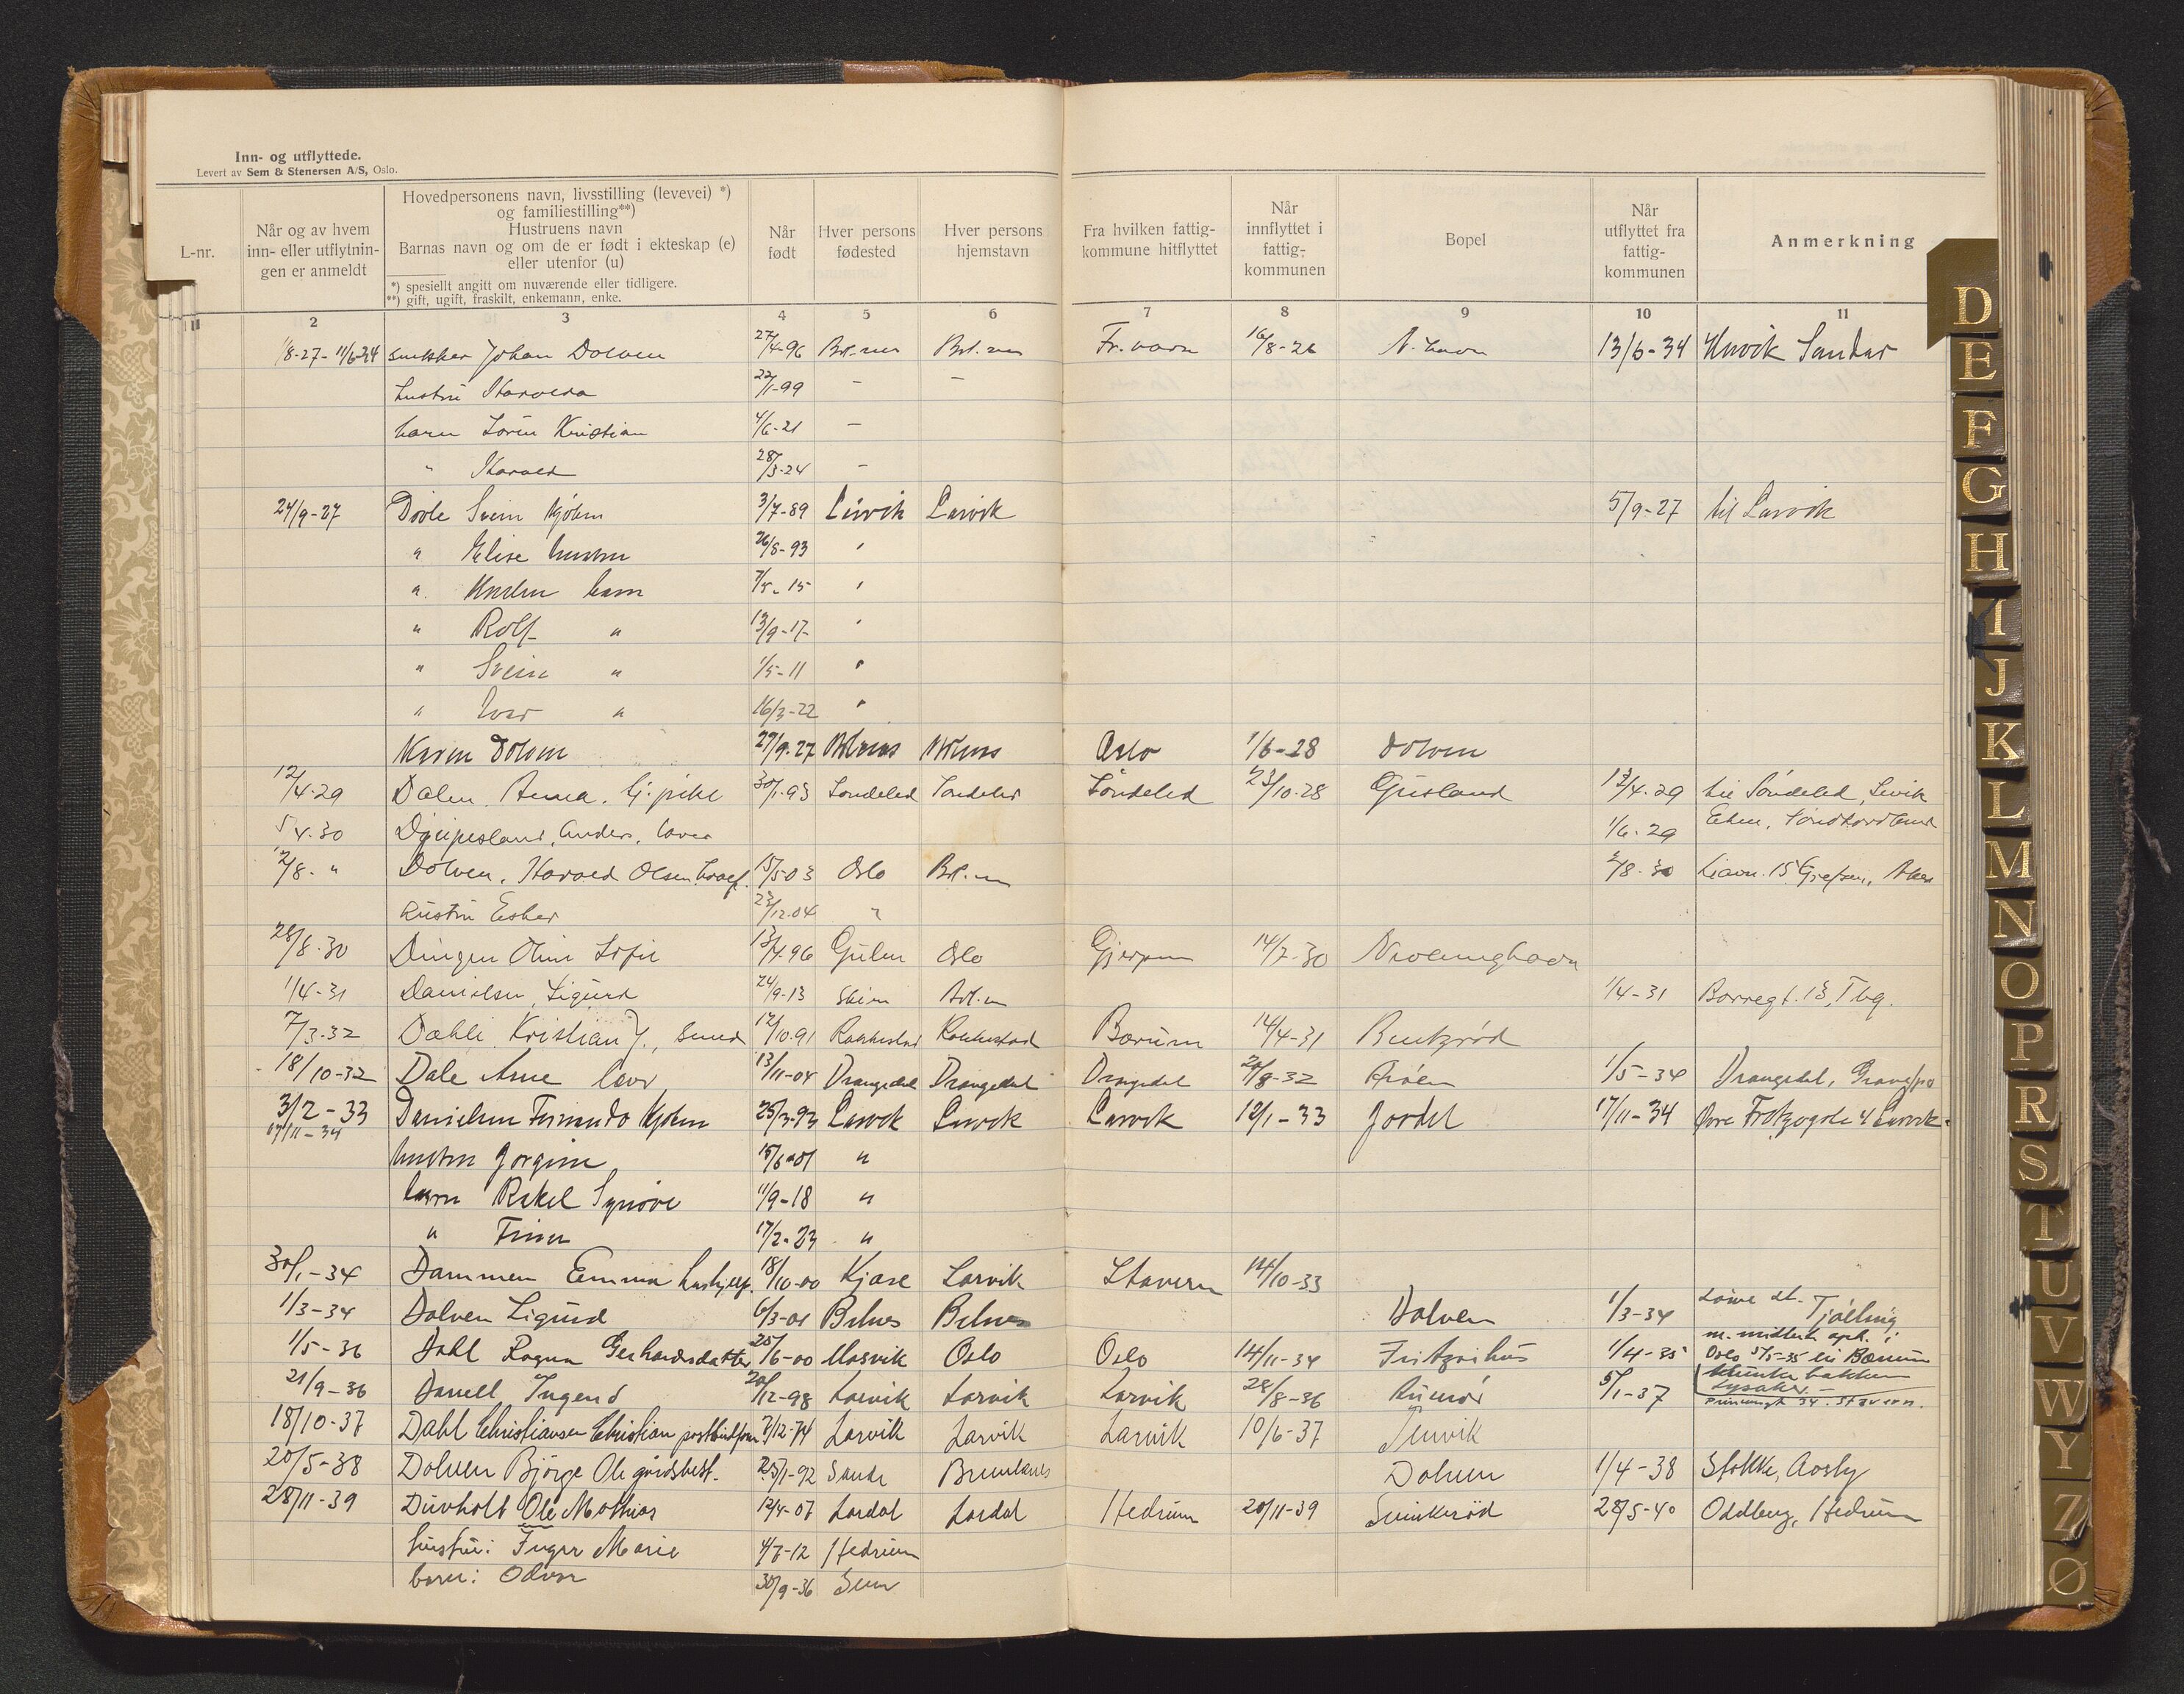 Inn- og utflyttede.
Levert av Sem & Stenersen A/S, Oslo.
L-nr.
Når og av hvem inn- eller utflytnin-gen er anmeldt
Hovedpersonens navn, livsstilling (levevei) *)
og familiestilling**)
Hustruens navn
Barnas navn og om de er født i ekteskap (e)
eller utenfor (u)
*) spesielt angitt om nuværende eller tidligere.
**) gift, ugift, fraskilt, enkemann, enke.
Når født
Hver persons fødested
Hver persons hjemstavn
Fra hvilken fattig-kommune hitflyttet
Når innflyttet i fattig-kommunen
Bopel
Når utflyttet fra fattig-kommunen
Anmerkning
1 2 3 4 5 6 7 8 9 10 11
1/8-27 - 11/6-34 snekker Johan Dolven 27/4-96 Brl.nes Brl.nes Fr.værn 16/8-26 N.havn 13/6-34 Sandar
hustru 22/1-99 - -
barn Sören Kristian 4/6-21 -
" Harald 28/3-24 -
24/9-27 Svein 3/7-89 Larvik Larvik 5/9-27 til Larvik
" Elise hustru 26/8-93 "
" barn 7/5-15 "
" Rolf " 13/9-17 "
" Svein " 1/5-11 "
" Ivar " 16/3-22 "
Karen Dolven 27/9-27 Brlnes Brlnes Oslo 1/6-28 Dolven
12/4-29 Dalen, Anna, tj.pike 30/1-93 Søndeled Søndeled Søndeled 23/10-28 Grisland 12/4-29 til Søndeled,
5/4-30 Anders, 1/6-29
2/8-" Dolven, Harald Olsen 15/5-03 Oslo Brl.nes 2/8-30 15 Grefsen, Aker
Hustru Esther 23/12-04 "
28/8-30 Oline Sofie 13/4-96 Gulen Oslo Gjerpen 14/7-30 Nevlunghavn
1/4-31 Danielsen, Sigurd 24/9-13 Skien Brl.nes 1/4-31 Borregt. 13, Tbg.
7/3-32 Dæhli Kristian J., smed 12/10-91 Rakkestad Rakkestad Bærum 14/4-31
18/10-32 Dale Arne 13/11-04 Drangedal Drangedal Drangedal 20/8-32 1/5-34 Drangedal,
3/2-33 Danielsen 25/3-93 Larvik Larvik Larvik 12/1-33 Jordet 17/11-34 Øvre Fritzøgate 4 Larvik.
17/11-34
hustru Jorgine 15/6-01 "
barn Rakel Synøve 11/9-18 "
" Finn 17/2-23 "
30/1-34 Dammen Emma 18/10-00 Kjose Larvik Stavern 14/10-33
1/3-34 Dolven Sigurd 6/3-01 Brlnes Brlnes Dolven 1/3-34 Tjølling
1/5-36 Dahl Ragna Gerhardsdatter 25/6-00 Mosvik Oslo Oslo 14/11-34 Fritzøehus 1/4-35 m. midlert. oph. i
Oslo 5/5-35 til Bærum
bakken
Lysaker.
21/9-36 20/12-98 Larvik Larvik Larvik 28/8-36 5/1-37 34. Stavern.
18/10-37 Dahl Christiansen Christian 7/12-74 Larvik Larvik Larvik 10/6-37
20/5-38 Dolven Bjørge Ole gårdsbest. 25/1-92 Sande Brunlanes Dolven 1/4-38 Stokke,
28/11-39 Duvholt Ole Mathias 12/4-07 Lardal Lardal Hedrum 20/11-39 28/5-40 Oddberg, Hedrum
hustru: Inger Marie 4/7-12 Hedrum
barn: Odvar 30/9-36 Sem
D
E
F
G
H
I
J
K
L
M
N
O
P
R
S
T
U
V
W
Y
Z
Ø